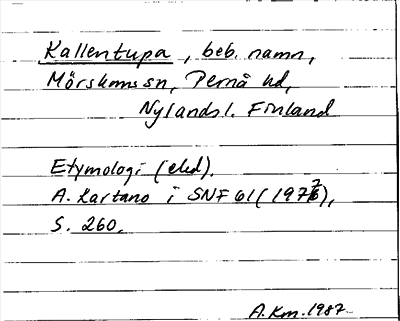 Kallentupa, beb. namn,
Mörskoms sn, Pernå hd,
Nylandsl. Finland
Etymologi (eld).
A. Kartano i SNF 61 (1977),
S. 260.
A.Km.1987